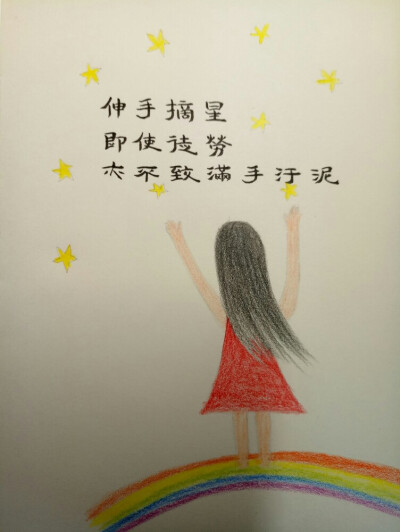 伸手摘星
即使徒勞
亦不致滿手汙泥